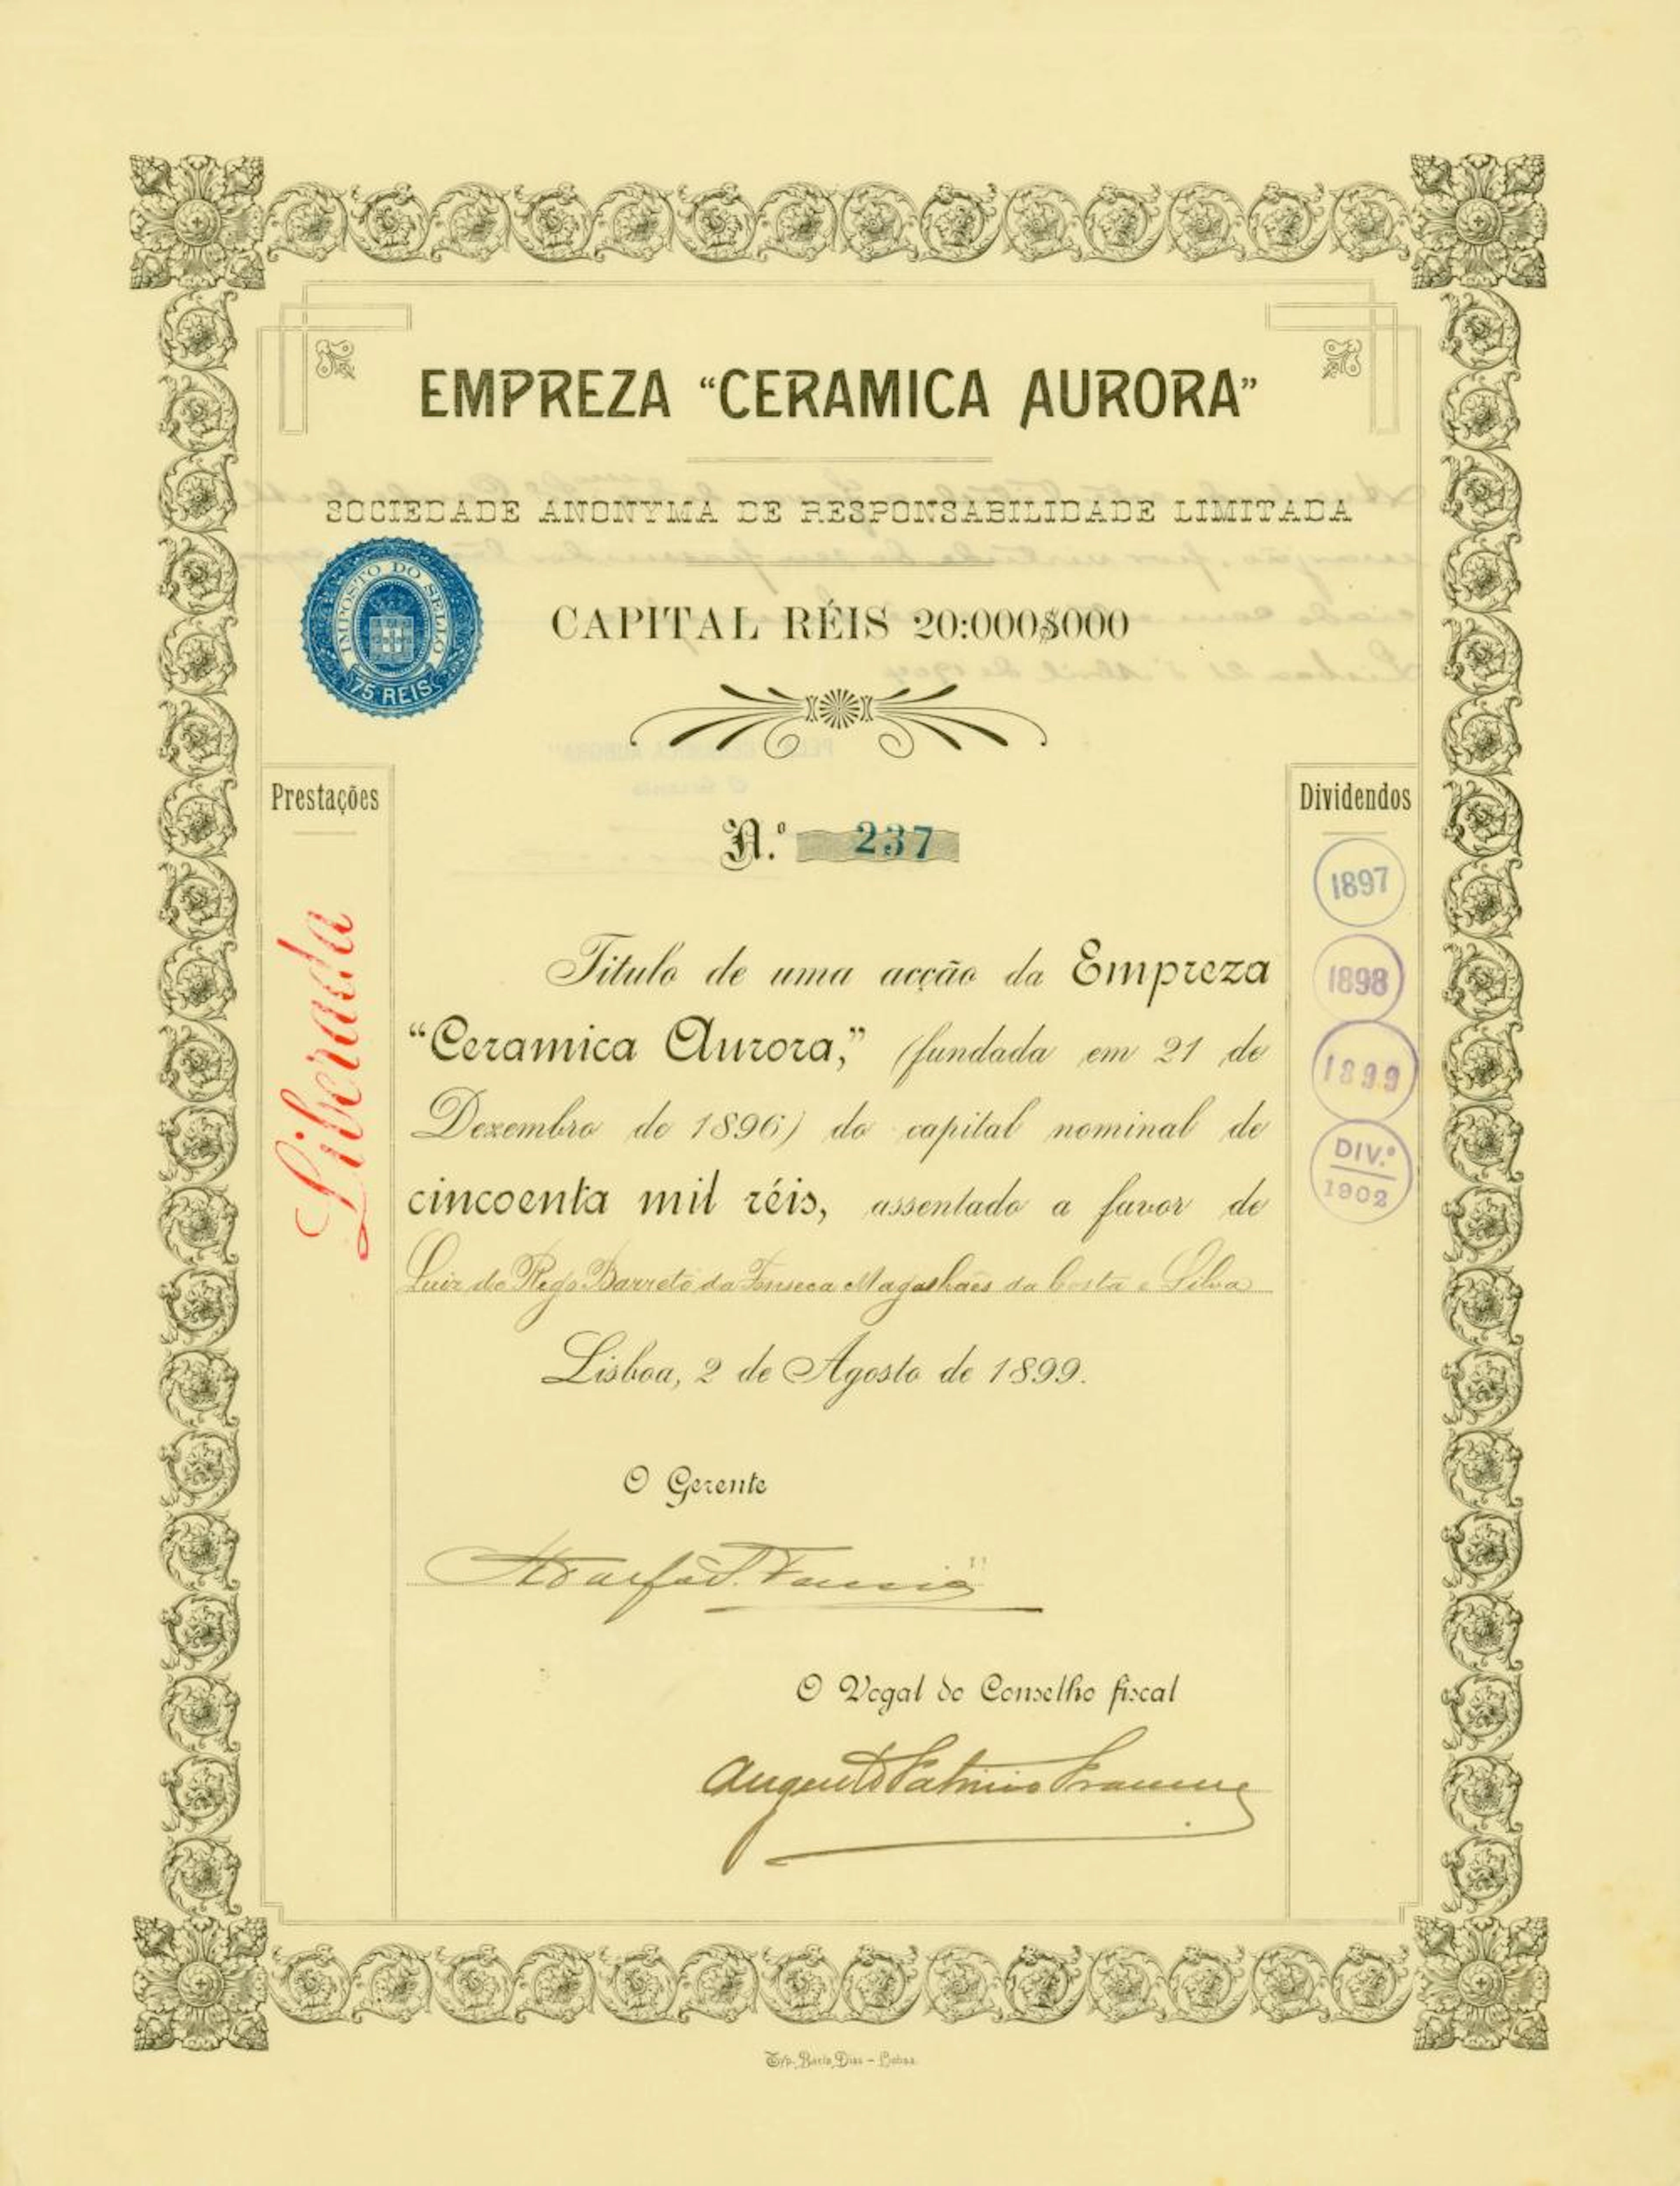 EMPREZA “CERAMICA AURORA”
SOCIEDADE ANONYMA DE RESPONSABILIDADE LIMITADA
IMPOSTO DO SELLO
75 REIS
CAPITAL RÉIS 20:000$000
Prestações
Liberada
Dividendos
1897
1898
1899
DIV.º
1902
N.º 237
Titulo de uma acção da Empreza
“Ceramica Aurora,” (fundada em 21 de
Dezembro de 1896) do capital nominal de
cincoenta mil réis, assentado a favor de
Luiz do Rego Barreto da Fonseca Magalhães da Costa e Silva
Lisboa, 2 de Agosto de 1899.
O Gerente
O Vogal do Conselho fiscal
Augusto Patricio
Typ. Dias - Lisboa